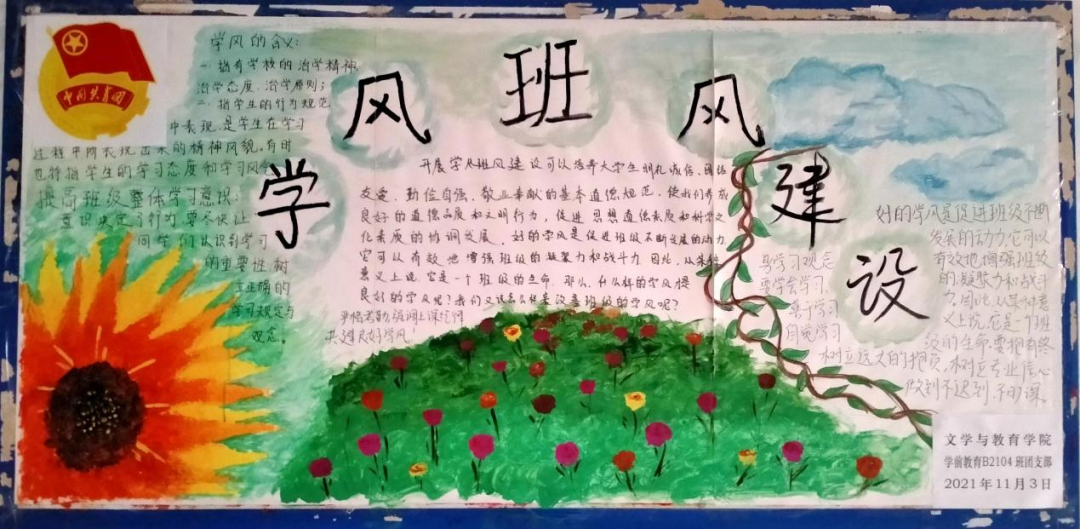 中国共青团
学风班风建设
学风的含义:
一.指有学校的治学精神,
治学态度.治学原则;
二.指学生的行为规范
中表现,是学生在学习
过程中所表现出来的精神风貌.有时
也特指学生的学习态度和学习风气
提高班级整体学习意识:
意识决定了行为要尽快让
同学们认识到学习
的重要性树
立正确的
学习观定与
观念。
开展学风班风建设可以培养大学生明礼诚信、团结
友爱、勤俭自强、敬业奉献的基本道德规范,使我们养成
良好的道德品质和文明行为,促进思想道德素质和科学文
化素质的协调发展。好的学风是促进班级不断发展的动力,
它可以有效地增强班级的凝聚力和战斗力.因此,从某种
意义上说,它是一个班级的生命.那么,什么样的学风是
良好的学风呢?我们又该怎么样建设喜班级的学风呢?
共建良好学风
学习观念
要学会学习,
善于学习
自觉学习
树立远大的抱负,
好的学风是促进班级不断
发展的动力,它可以
有效地增强班级
的凝聚力和战斗
力.因此,从某种意
义上说,它是一个班
级的生命.要拥有终
树立专业信心
做到不迟到,不旷课。
文学与教育学院
学前教育B2104班团支部
2021年11月3日